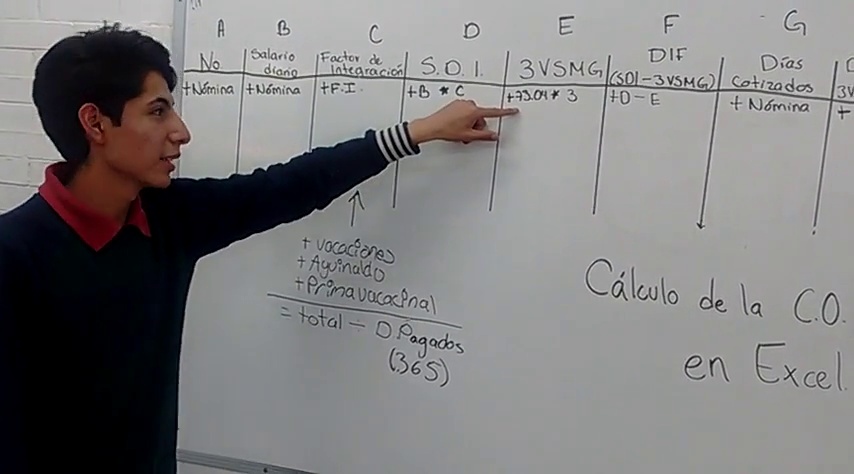 A B C D E F G
No Salario diario Factor de Integración S.D.I. 3VSMG DIF (SDI-3VSMG) Días Cotizados
+Nómina +Nómina +F.I. +B * C +73.04 * 3 +D-E +Nómina +
+ vacaciones
+ Aguinaldo
+ Prima vacacional
= total ÷ D.Pagados
(365)
Cálculo de la C.O.
en Excel.